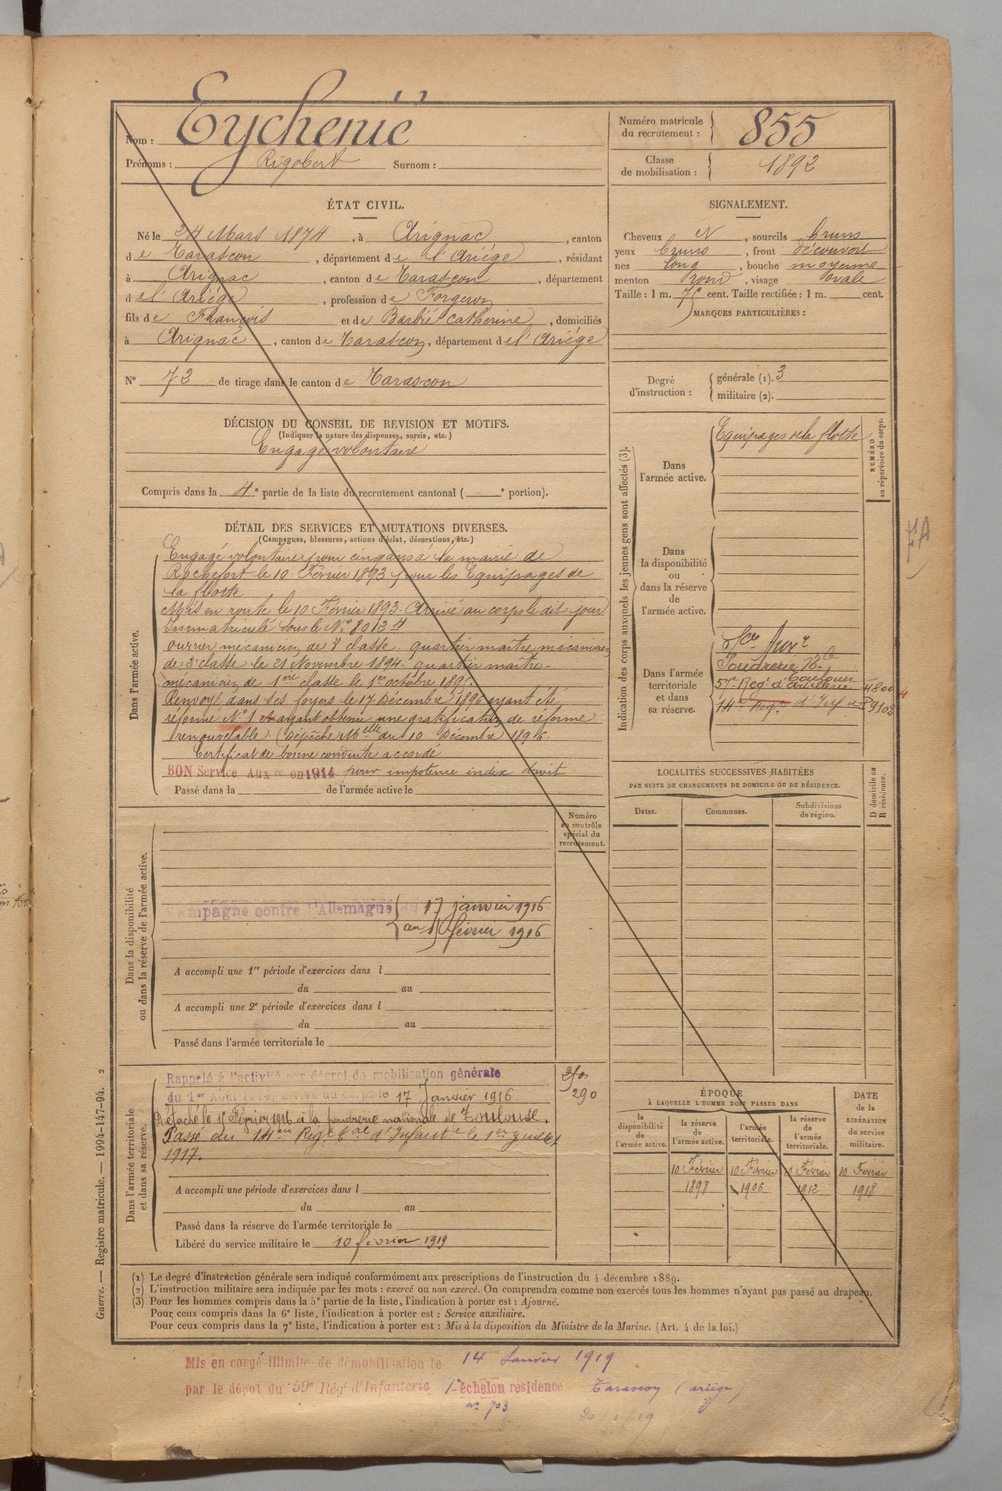 Nom : Eychenié
Prénoms : Rigobert Surnom :
Numéro matricule du recrutement : 855
Classe de mobilisation : 1892
ÉTAT CIVIL.
Né le 24 Mars 1874, à Arignac, canton
de Tarascon, département de l'Ariège, résidant
à Arignac, canton de Tarascon, département
de l'Ariège, profession de Forgeron
fils de François et de Barbié Catherine, domiciliés
à Arignac, canton de Tarascon, département de l'Ariège
N° 73 de tirage dans le canton de Tarascon
SIGNALEMENT.
Cheveux et, sourcils bruns
yeux bruns, front découvert
nez long, bouche moyenne
menton rond, visage ovale
Taille : 1 m. 75 cent. Taille rectifiée : 1 m. cent.
MARQUES PARTICULIÈRES :
Degré d'instruction :
générale (1). 3
militaire (2).
DÉCISION DU CONSEIL DE REVISION ET MOTIFS.
(Indiquer la nature des dispenses, sursis, etc.)
Engagé volontaire
Compris dans la 4e partie de la liste du recrutement cantonal ( e portion).
DÉTAIL DES SERVICES ET MUTATIONS DIVERSES.
(Campagnes, blessures, actions d'éclat, décorations, etc.)
Dans l'armée active.
Engagé volontaire pour cinq ans à la mairie de
Rochefort le 10 Février 1893 pour les Equipages de
la flotte
Mis en route le 10 Février 1893. Arrivé au corps le dit jour
Immatriculé sous le N°
ouvrier mécanicien de classe. quartier maître mécanicien
de 2e classe le 21 Novembre 1894. quartier maître
mécanicien de 1ère classe le 1er octobre
Renvoyé dans ses foyers le 17 Décembre ayant été
réformé N° 1 et ayant obtenu une gratification de réforme
renouvelable (Dépêche Melle du 10 Décembre
Certificat de bonne conduite accordé
BON Service Auxre en 1914 pour impotence index droit
Passé dans la de l'armée active le
Indication des corps auxquels les jeunes gens sont affectés (3).
NUMÉRO au répertoire du corps.
Dans l'armée active.
Equipages de la flotte
Dans la disponibilité ou dans la réserve de l'armée active.
Dans l'armée territoriale et dans sa réserve.
Poudrerie Nle
Toulouse
57e Regt d'artillerie
14e Regt d'Infie
LOCALITÉS SUCCESSIVES HABITÉES
PAR SUITE DE CHANGEMENTS DE DOMICILE OU DE RÉSIDENCE.
Dates.
Communes.
Subdivisions de région.
D domicile ou R résidence.
Numéro au contrôle spécial du recrutement.
Dans la disponibilité ou dans la réserve de l'armée active.
Campagne contre l'Allemagne du 17 janvier 1916
au février 1916
A accompli une 1re période d'exercices dans l
du au
A accompli une 2e période d'exercices dans l
du au
Passé dans l'armée territoriale le
Dans l'armée territoriale et dans sa réserve.
290
Rappelé à l'activité par décret de mobilisation générale
du 1er Août 1914, arrivé au corps le 17 Janvier 1916
Détaché le Février 1916 à la poudrerie nationale de Toulouse.
Passé au 14e Régt d'Infanterie le 1er Juillet
1917.
A accompli une période d'exercices dans l
du au
Passé dans la réserve de l'armée territoriale le
Libéré du service militaire le 10 février 1919
ÉPOQUE
À LAQUELLE L'HOMME DOIT PASSER DANS
la disponibilité de l'armée active.
la réserve de l'armée active.
l'armée territoriale.
la réserve de l'armée territoriale.
DATE de la LIBÉRATION du service militaire.
10 Février 1898
10 Février 1906
10 Février 1912
10 Février 1918
(1) Le degré d'instruction générale sera indiqué conformément aux prescriptions de l'instruction du 4 décembre 1889.
(2) L'instruction militaire sera indiquée par les mots : exercé ou non exercé. On comprendra comme non exercés tous les hommes n'ayant pas passé au drapeau.
(3) Pour les hommes compris dans la 5e partie de la liste, l'indication à porter est : Ajourné.
Pour ceux compris dans la 6e liste, l'indication à porter est : Service auxiliaire.
Pour ceux compris dans la 7e liste, l'indication à porter est : Mis à la disposition du Ministre de la Marine. (Art. 4 de la loi.)
Guerre. — Registre matricule. — 1994-147-94. 2
Mis en congé illimité de démobilisation le 14 Janvier 1919
par le dépôt du 59e Régt d'Infanterie échelon residence Tarascon (ariège)
n° 703